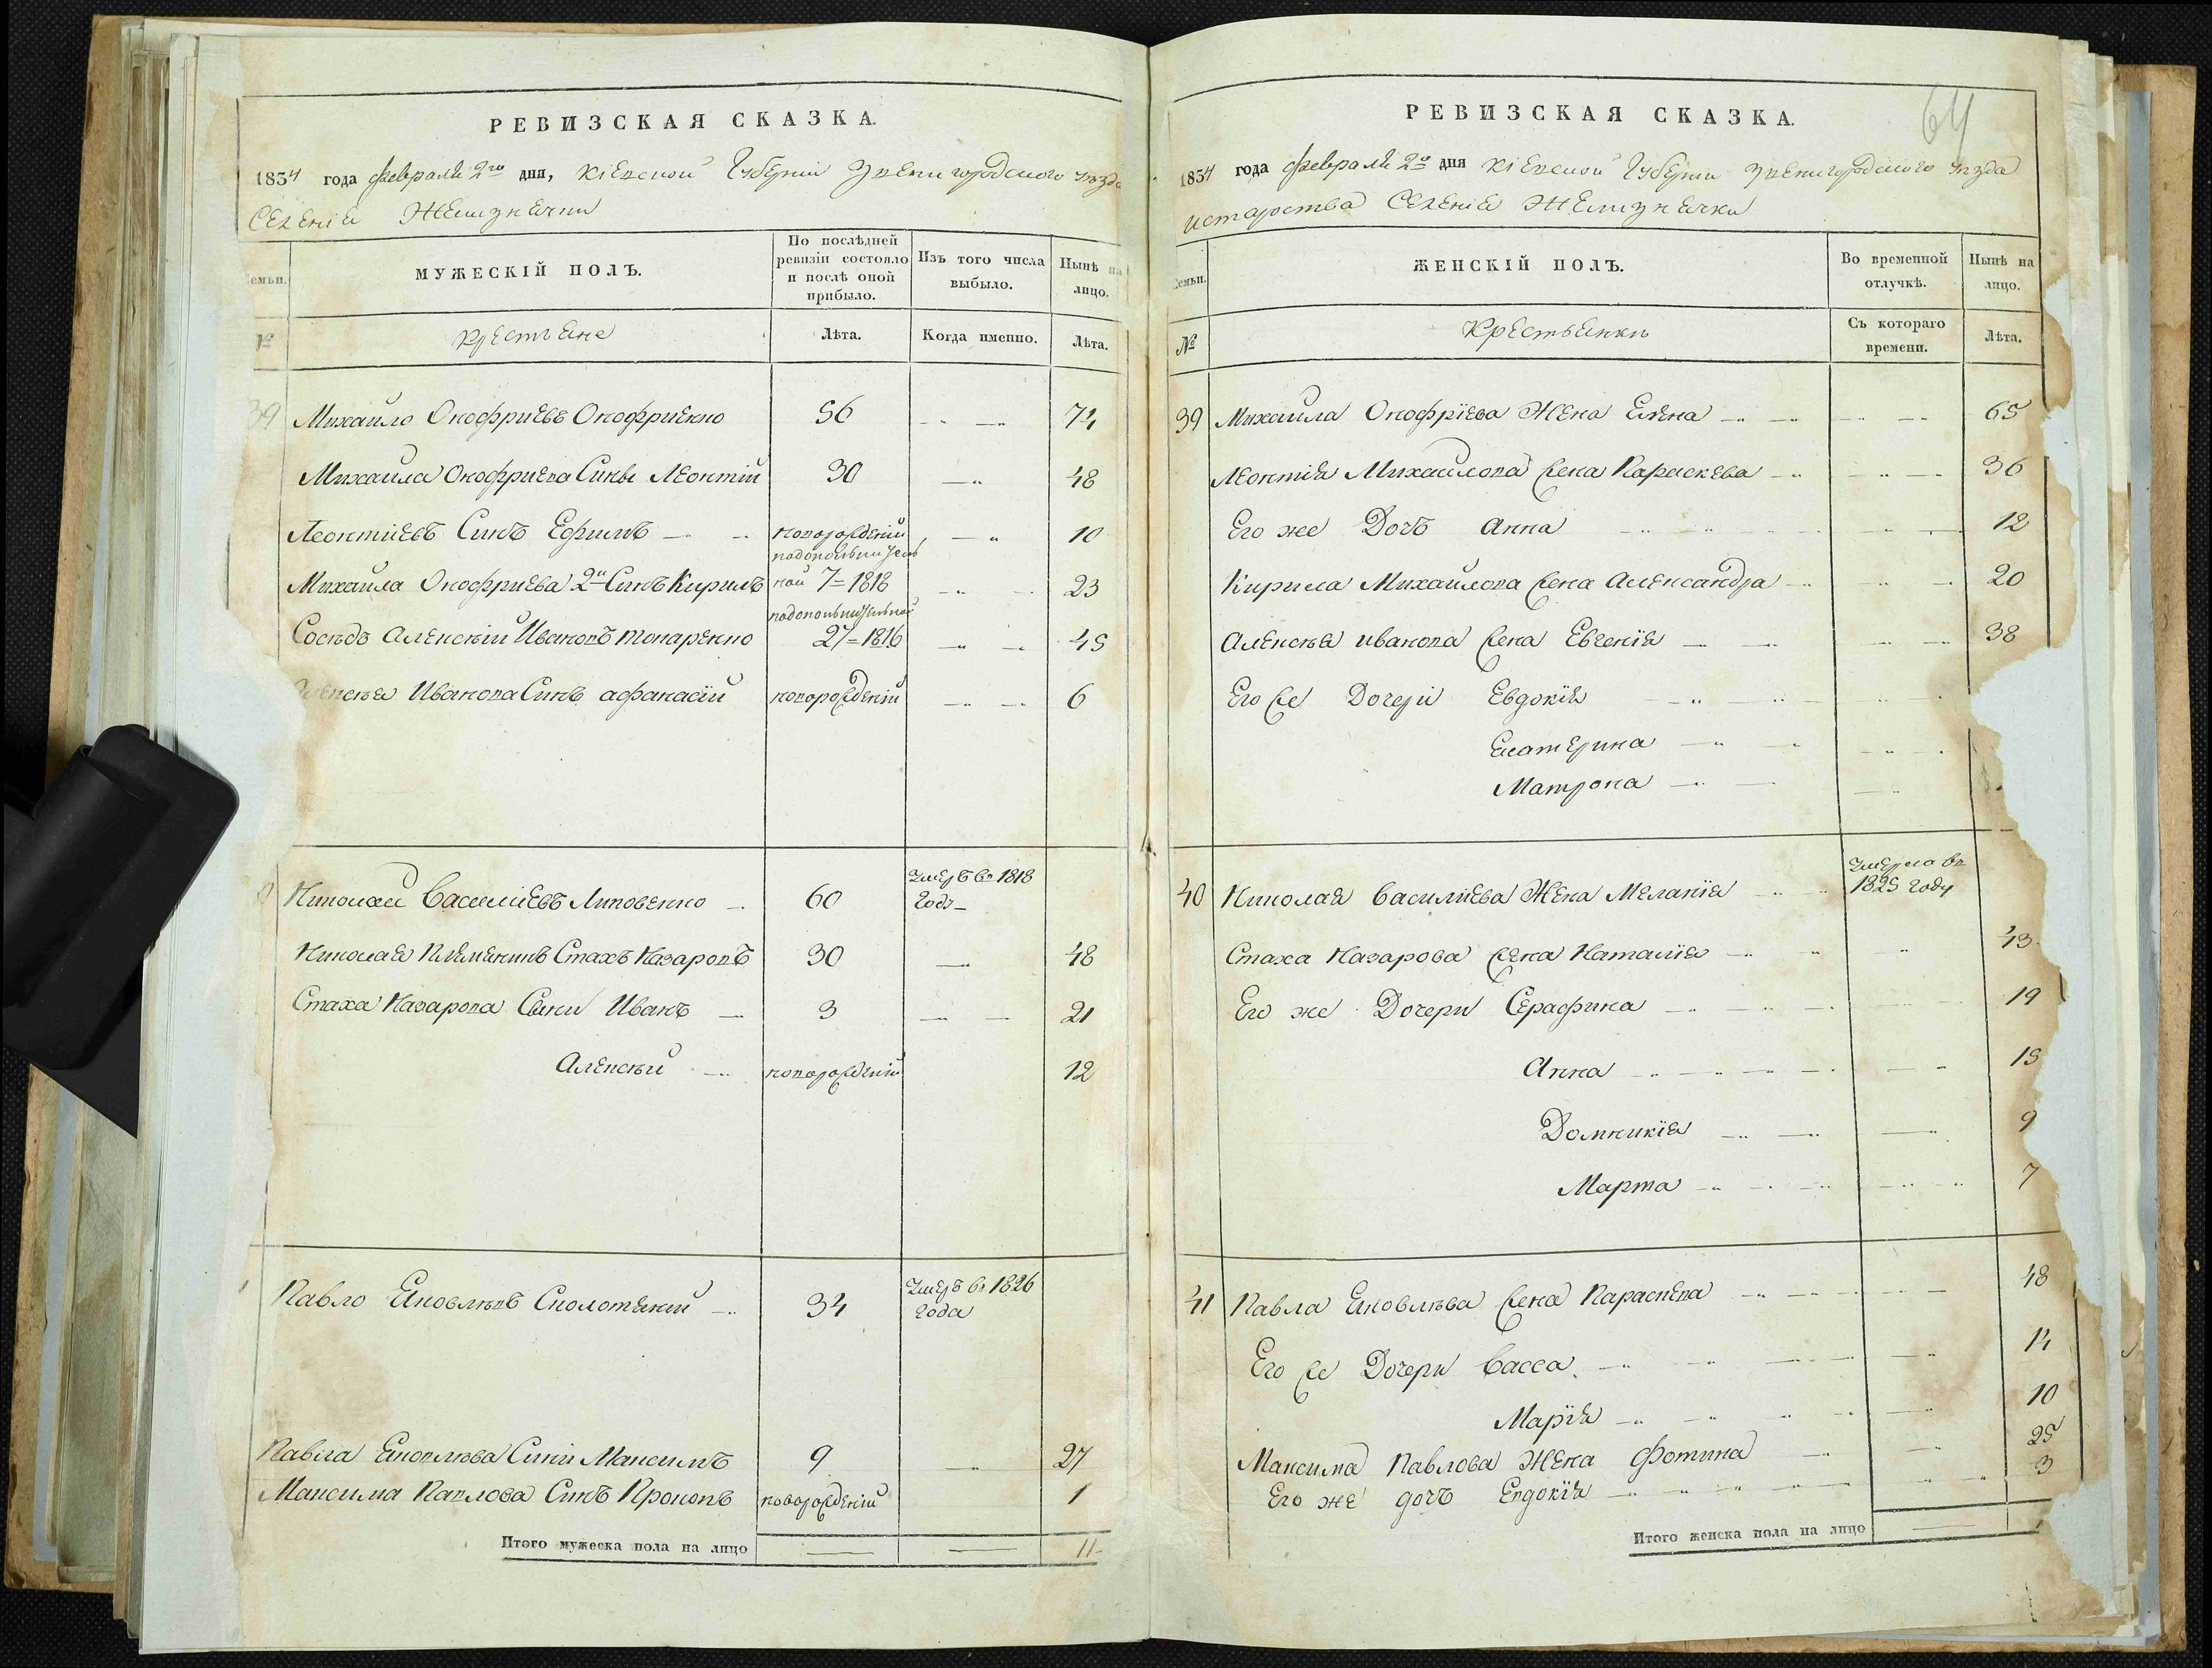 РЕВИЗСКАЯ СКАЗКА.
1834 года февраля 2го дня, Кіевской Губерніи Звенигородского уезда
Селенія
Семьи.
МУЖЕСКІЙ ПОЛЪ.
По послѣдней ревизіи состояло и послѣ оной прибыло.
Изъ того числа выбыло.
Нынѣ на лицо.
№
Крестьяне
Лѣта.
Когда именно.
Лѣта.
39 Михайло Онофриевъ Онофриенко 56 74
Михайла Онофриева Сины Леонтій 30 48
Леонтіевъ Синъ Ефимъ новорожденій 10
Михайла Онофриева 2й Синъ Кирилъ 7=1818 23
Сосѣдъ Алексѣй Ивановъ 27=1816 45
Алексѣя Иванова Синъ афанасій новорожденій 6
Николай Василіевъ Липовенко 60 Умеръ въ 1818 Году
Николая Племяникъ Стахъ Назаровъ 30 48
Стаха Назарова Сини Иванъ 3 21
Алексѣй новорожденій 12
Павло Яковлѣвъ 34 Умеръ въ 1826 Года
Павла Яковлѣва Сини Максимъ 9 27
Максима Павлова Синъ Прокопъ новорожденій 1
Итого мужеска пола на лицо 11
64
РЕВИЗСКАЯ СКАЗКА.
1834 года февраля 2о дня Кіевской Губерніи Звенигородского уезда
Селенія
Семьи.
ЖЕНСКІЙ ПОЛЪ.
Во временной отлучкѣ.
Нынѣ на лицо.
№
Крестьянки
Съ котораго времени.
Лѣта.
39 Михайла Онофріева Жена Елена 65
Леонтія Михайлова жена Параскева 36
Его же Дочъ Анна 12
Кирила Михайлова жена Александра 20
Алексѣя иванова жена Евгенія 38
Его же Дочери Евдокія
Екатерина
Матрона
40 Николая Василиева Жена Меланія Умерла въ 1825 году
Стаха Назарова жена Наталія 43
Его же Дочери Серафина 19
Анна 15
Домникія 9
Марта 7
41 Павла Яковлѣва жена Параскева 48
Его же Дочери Васса 14
Марія 10
Максима Павлова Жена Фотина 25
Его же дочъ Евдокія 3
Итого женска пола на лицо